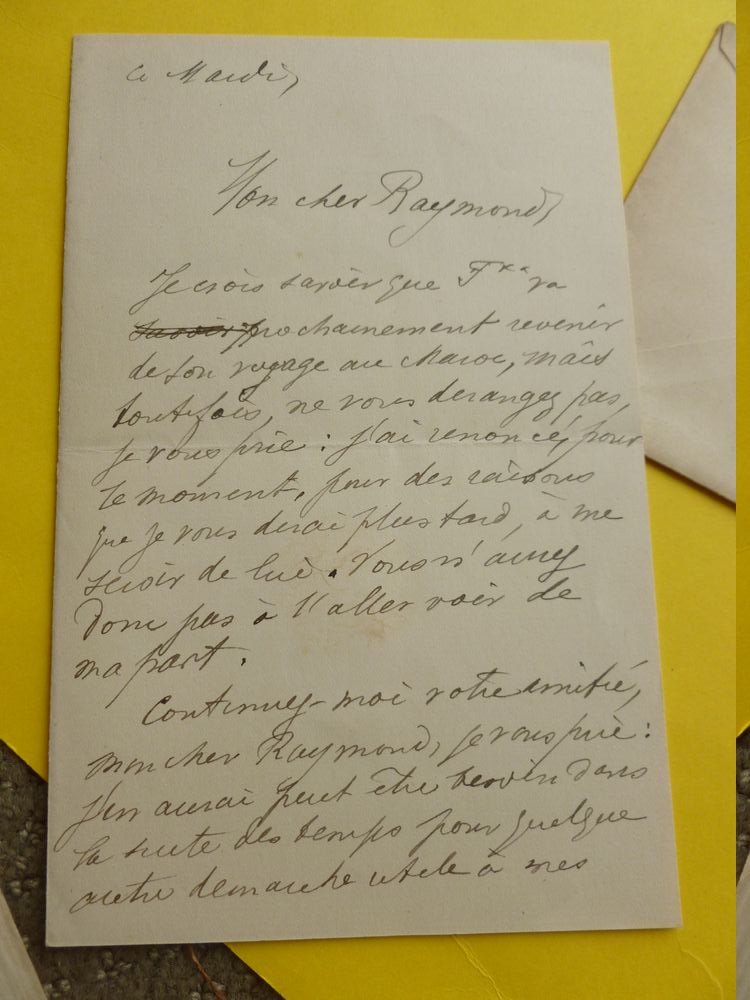 Ce Mardi,
Mon cher Raymond,
Je crois savoir que Fxxx va
savoir prochainement revenir
de son voyage au Maroc, mais
toutefois, ne vous derangez pas,
je vous prie : j'ai renoncé, pour
le moment, pour des raisons
que je vous dirai plus tard, à me
servir de lui. Vous n'avez
donc pas à l'aller voir de
ma part.
Continuez-moi votre amitié,
mon cher Raymond, je vous prie :
j'en aurai peut être besoin dans
la suite des temps pour quelque
autre démarche utile à mes